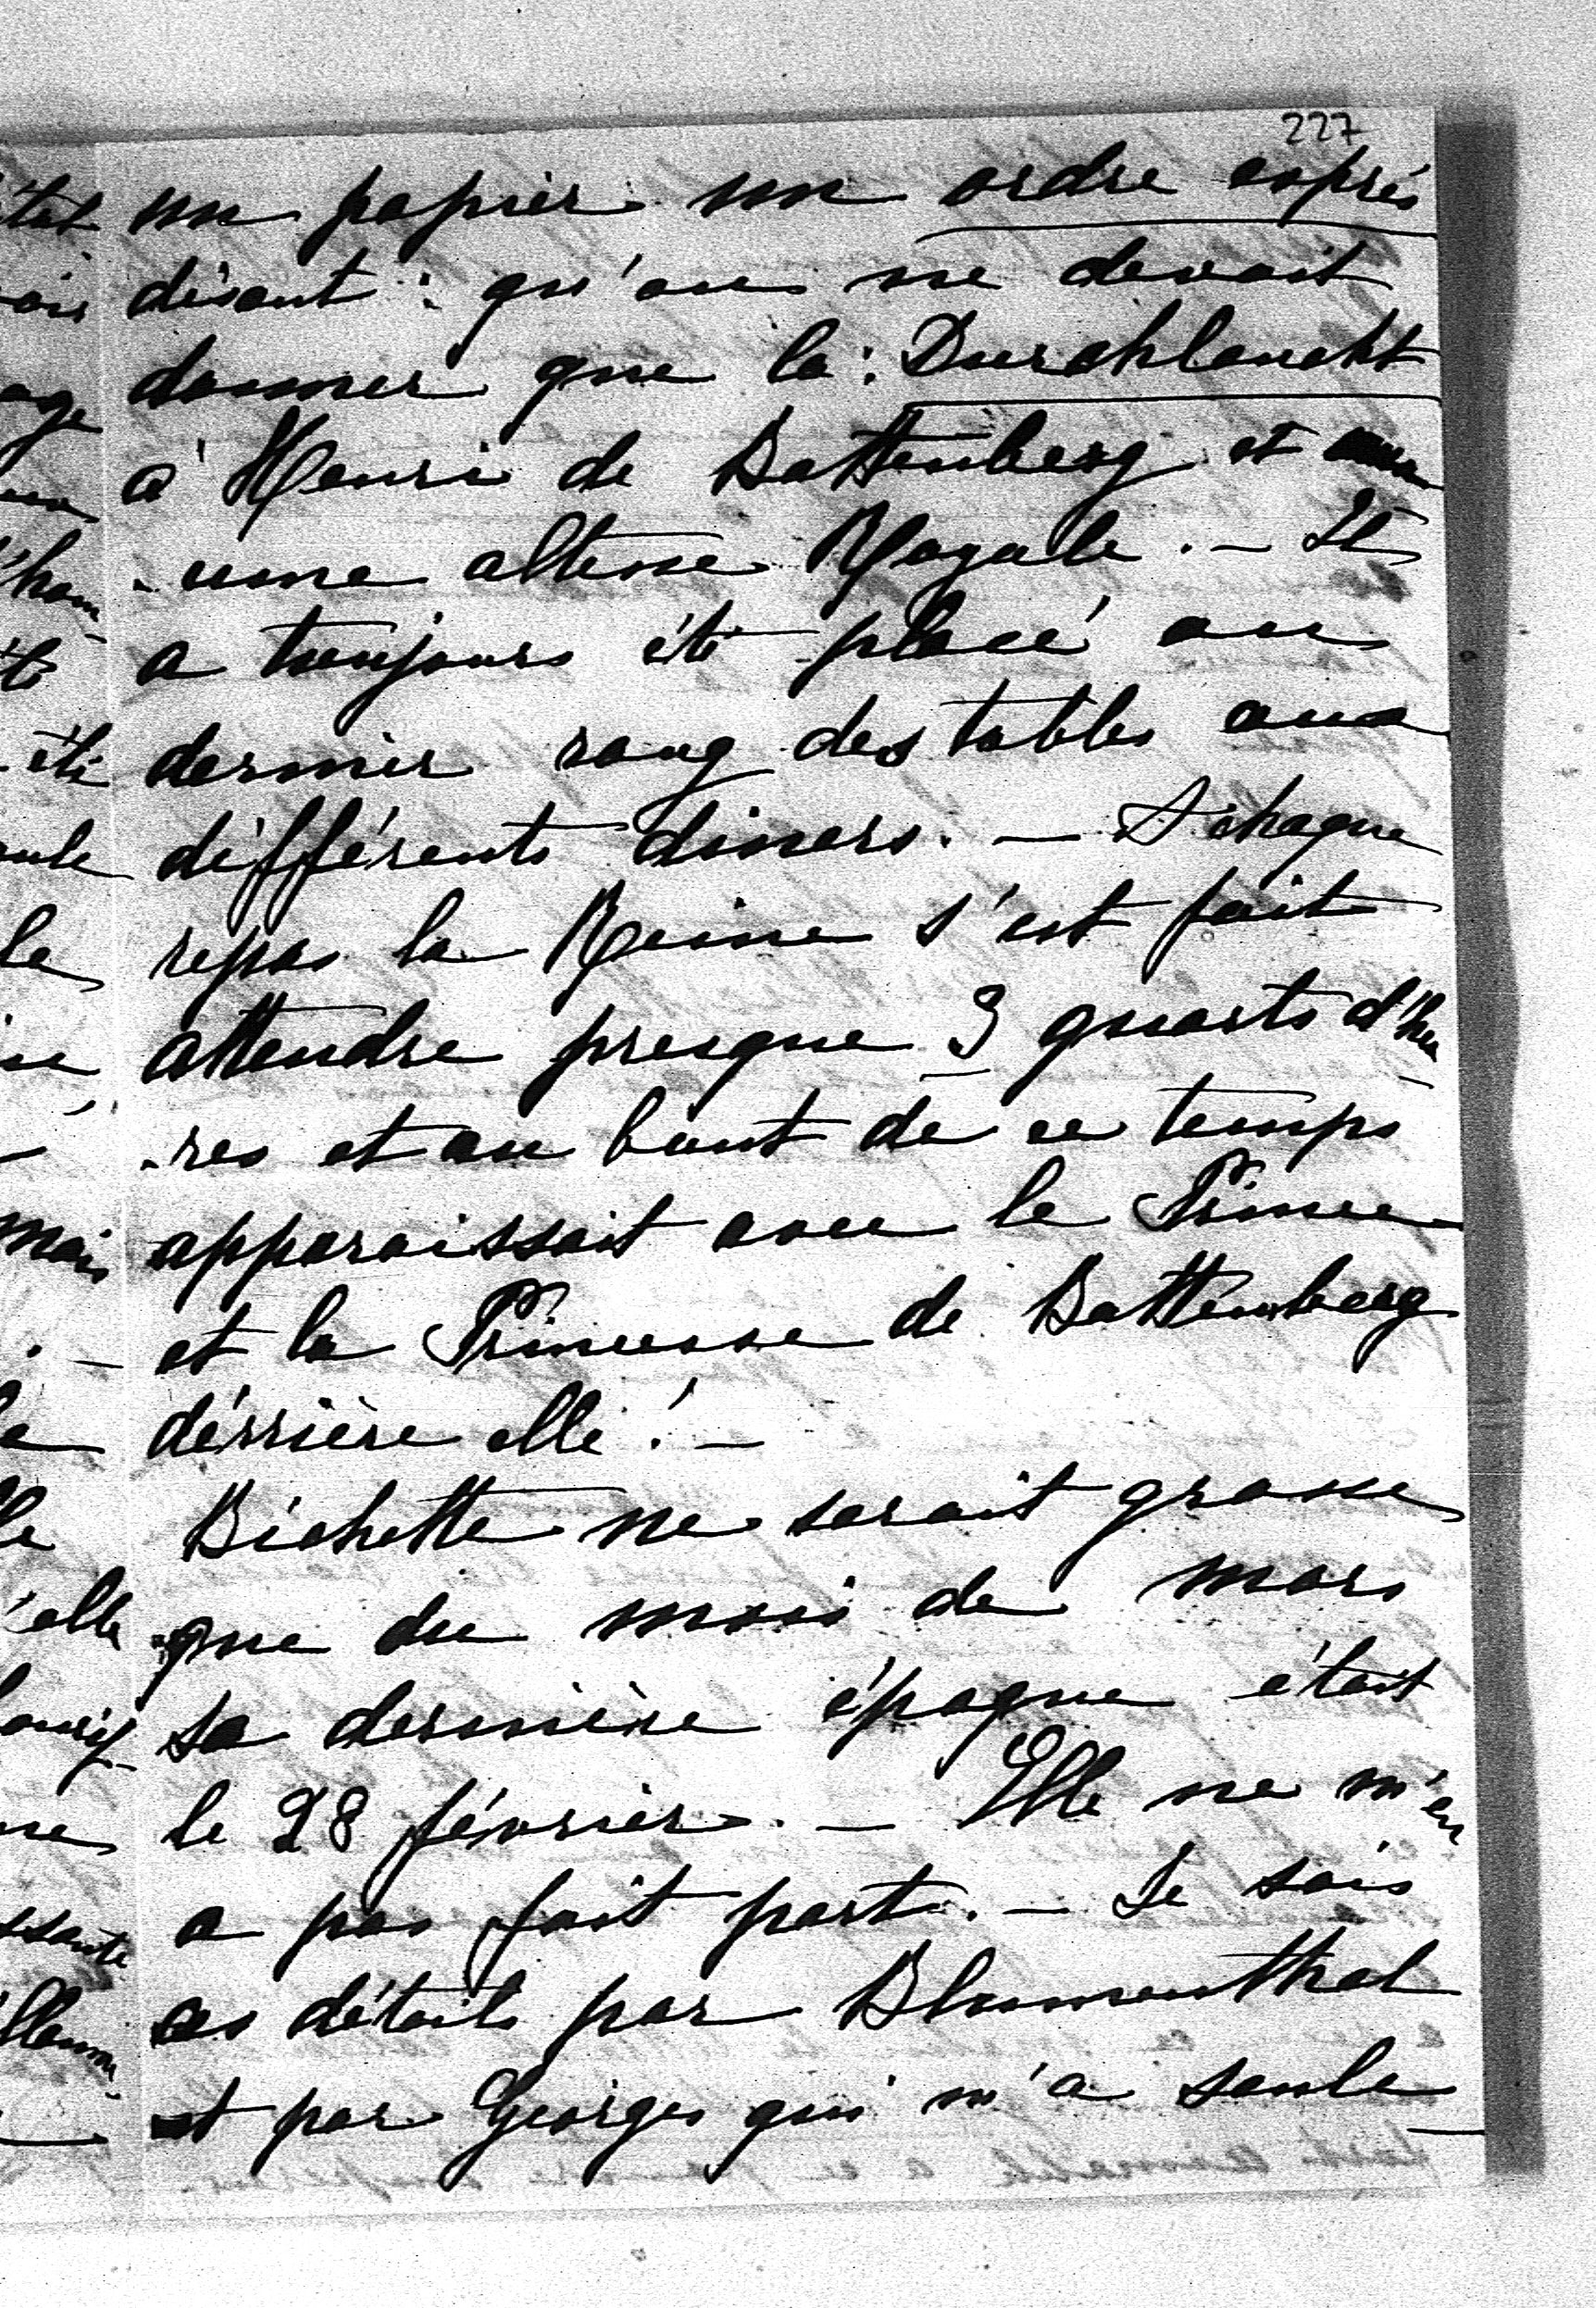 227
un papier un ordre exprès
disant : qu'on ne devait
donner que la : Durchlaucht
à Henri de Battenberg et au
-cune altesse Royale. – Il
a toujours été placé au
dernier rang des tables aux
différents diners. – A chaque
repas la Reine s'est fait
attendre presque 3 quarts d'heu
-res et au bout de ce temps
apparaissait avec le Prince
et la Princesse de Battenberg
dérrière elle ! –
Bichette ne serait grosse
que du mois de mars
sa dernière époque était
le 28 février. – Elle ne m'en
a pas fait part. – Je sais
ces détails par Blumenthal
et par Georges qui m'a seule-